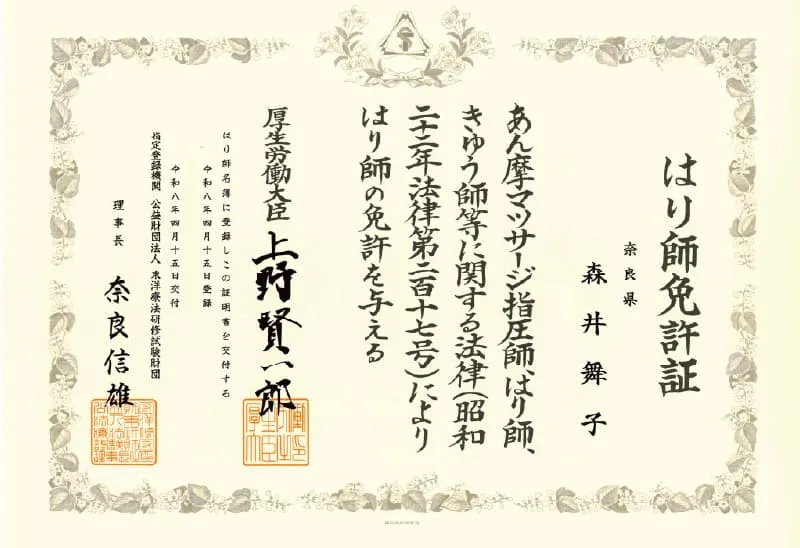 はり師免許証
奈良県
森井舞子
あん摩マツサージ指圧師、はり師、
きゆう師等に関する法律(昭和
二十二年法律第二百十七号)により
はり師の免許を与える
厚生労働大臣 上野賢一郎
はり師名簿に登録しこの証明書を交付する
令和八年四月十五日登録
令和八年四月十五日交付
指定登録機関 公益財団法人 東洋療法研修試験財団
理事長 奈良信雄